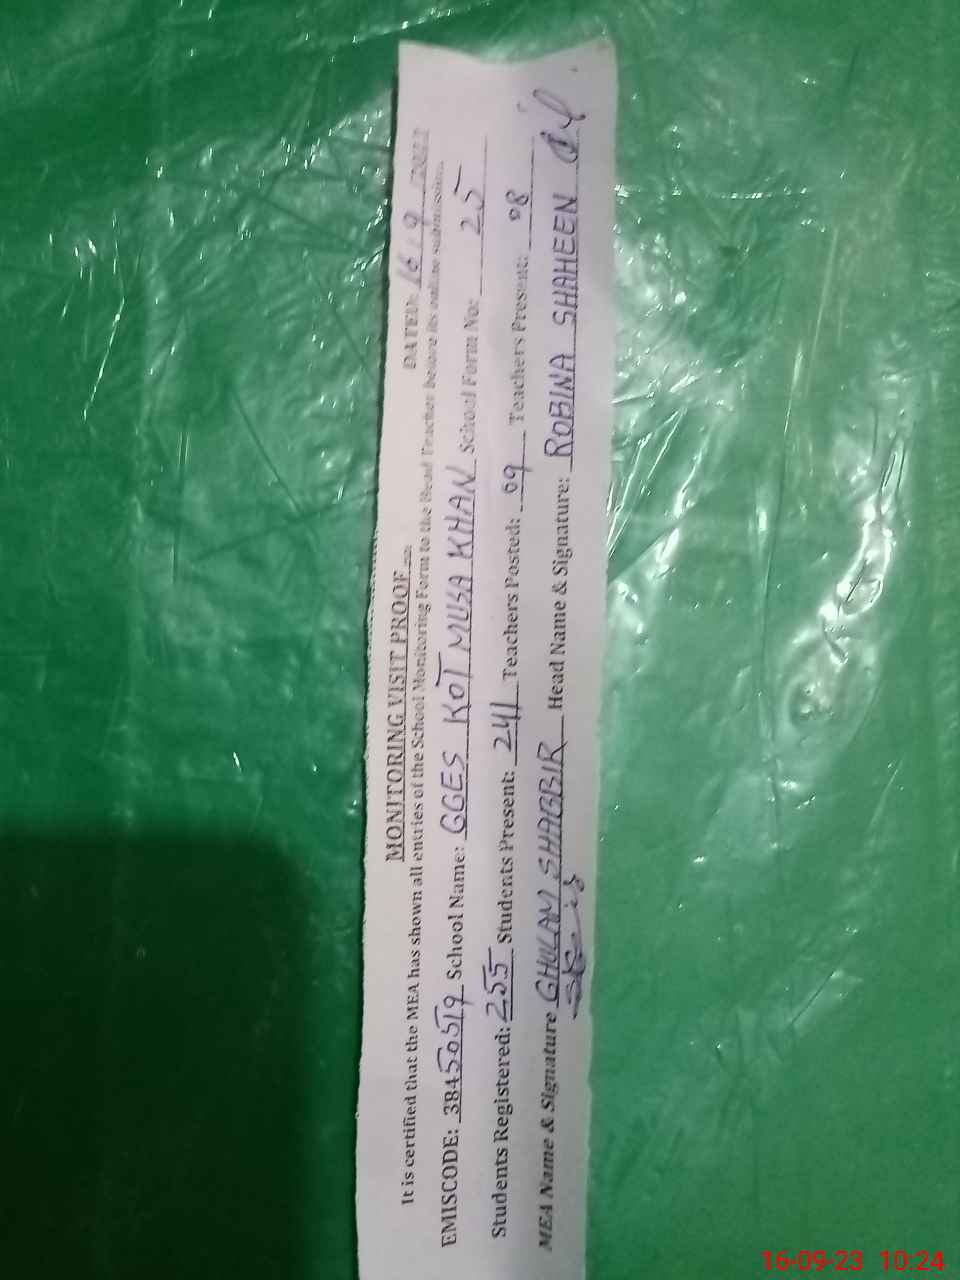 MONITORING VISIT PROOF
DATED: 16/9
It is certified that the MEA has shown all entries of the School Monitoring Form to the Head Teacher before its online submission.
EMISCODE: 38450519 School Name: GGES KOT MUSA KHAN School Form No: 25
Students Registered: 255 Students Present: 241 Teachers Posted: 09 Teachers Present: 08
MEA Name & Signature GHULAM SHABBIR Head Name & Signature: ROBINA SHAHEEN
16-09-23 10:24